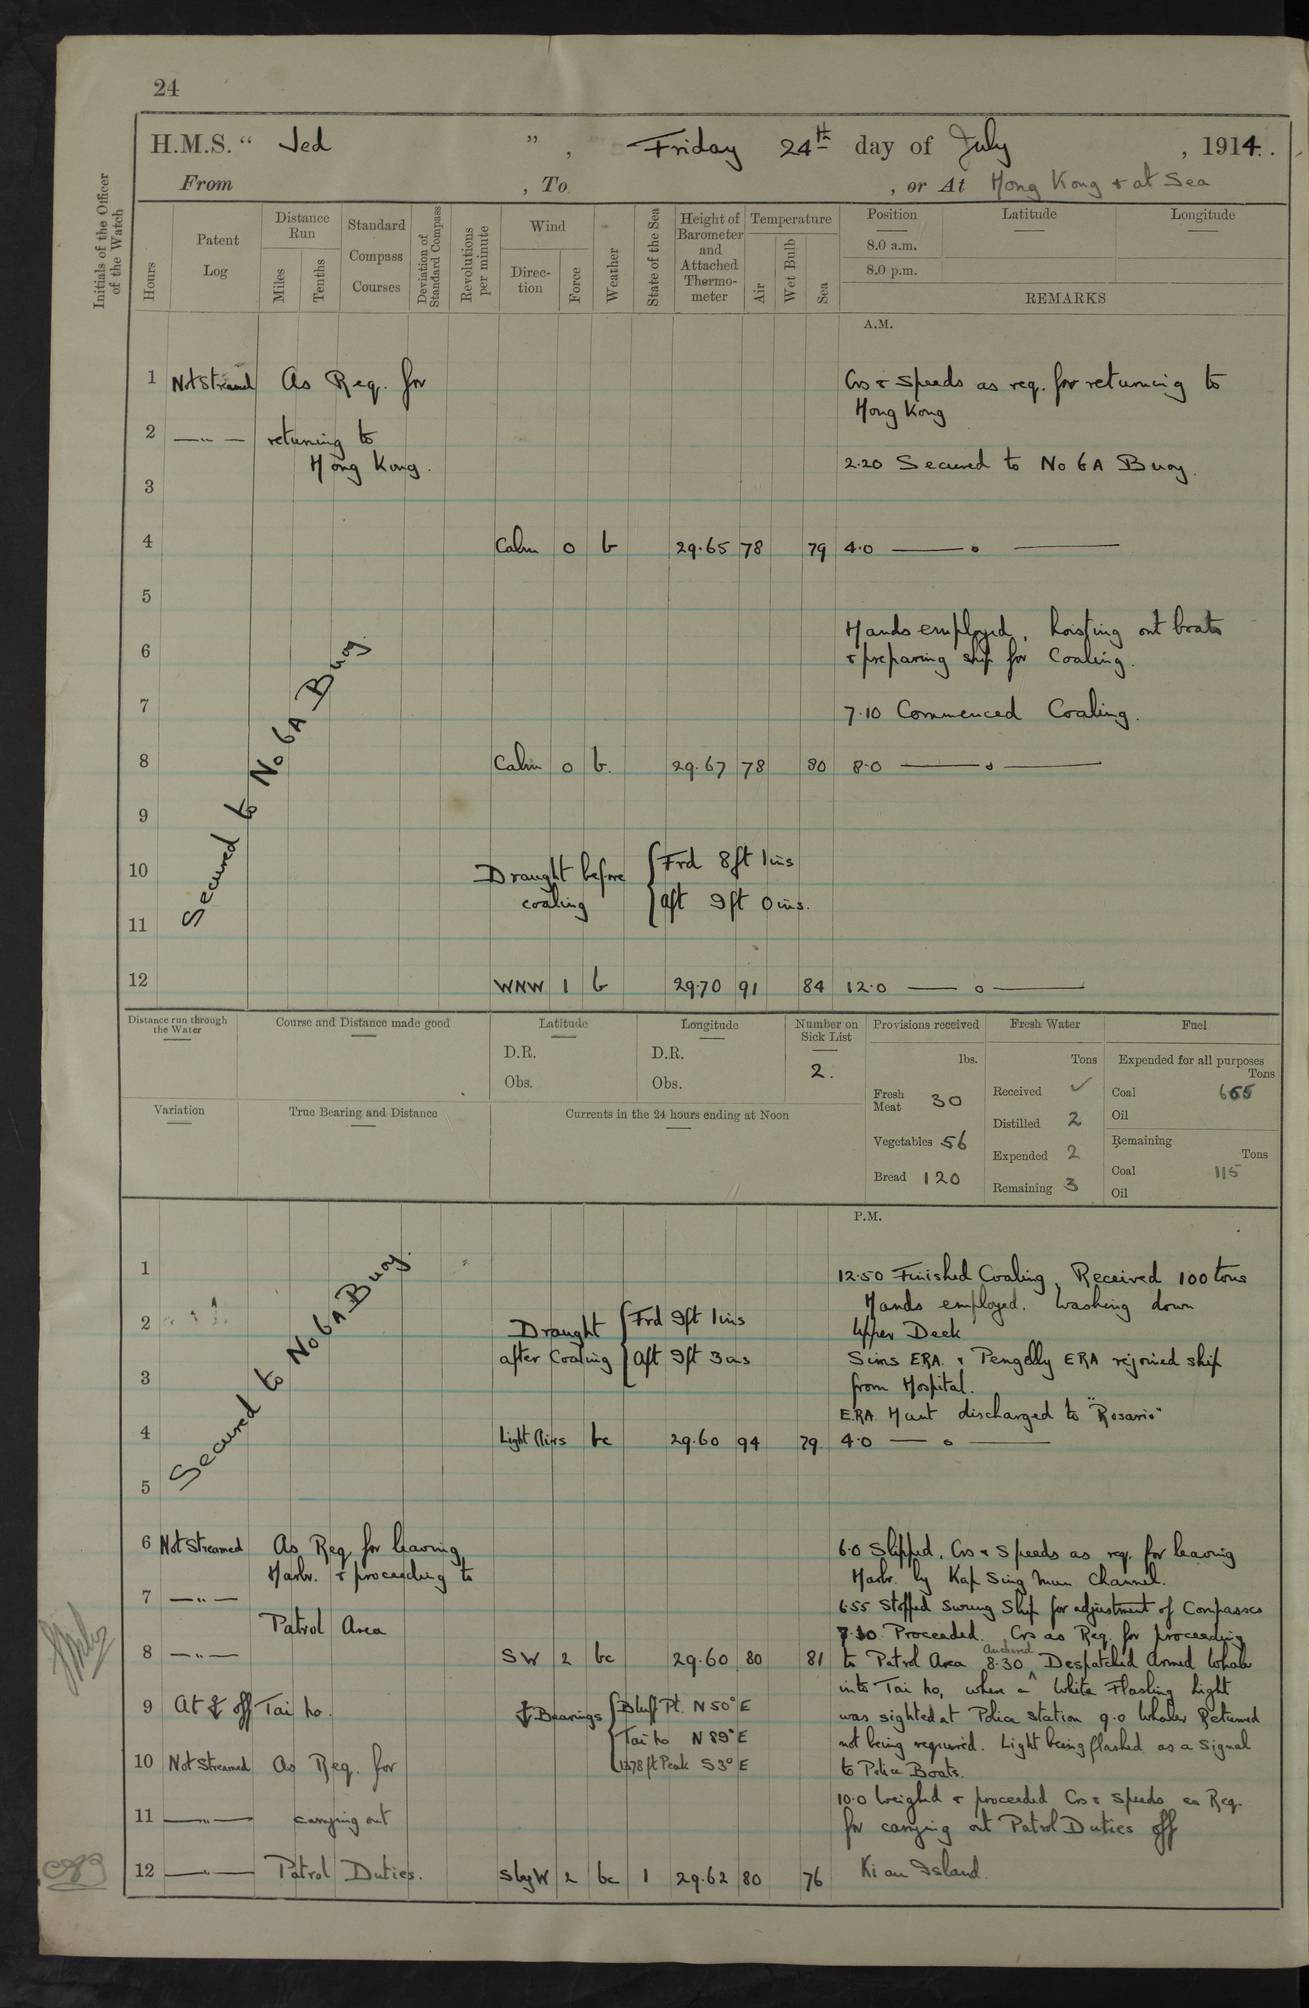 24
H.M.S. “ Jed ” , Friday 24th day of July , 1914.
From , To , or At Hong Kong & at Sea
Initials of the Officer of the Watch
Hours
Patent Log
Distance Run
Miles
Tenths
Standard Compass Courses
Deviation of Standard Compass
Revolutions per minute
Wind
Direc-tion
Force
Weather
State of the Sea
Height of Barometer and Attached Thermo-meter
Temperature
Air
Wet Bulb
Sea
Position
8.0 a.m.
8.0 p.m.
Latitude
Longitude
REMARKS
A.M.
1 Not Streamed As Req. for Cos & Speeds as req. for returning to
Hong Kong
2 —„— returning to
Hong Kong. 2.20 Secured to No 6A Buoy.
3
4 Calm 0 b 29.65 78 79 4.0 —— o ——
5
Hands employed, hoisting out boats
6 & preparing ship for Coaling.
7 7.10 Commenced Coaling.
Secured to No 6A Buoy.
8 Calm 0 b. 29.67 78 80 8.0 —— o ——
9
10 Draught before coaling { Frd 8ft 1ins
aft 9ft 0ins.
11
12 WNW 1 b 29.70 91 84 12.0 —— o ——
Distance run through the Water
Course and Distance made good
Latitude
D.R.
Obs.
Longitude
D.R.
Obs.
Number on Sick List
2.
Provisions received
lbs.
Fresh Meat 30
Vegetables 56
Bread 120
Fresh Water
Tons
Received ✓
Distilled 2
Expended 2
Remaining 3
Fuel
Expended for all purposes
Tons
Coal
Oil
Remaining
Tons
Coal 115
Oil
Variation
True Bearing and Distance
Currents in the 24 hours ending at Noon
P.M.
1 12.50 Finished Coaling, Received 100 tons
Hands employed. Washing down
2 Draught after Coaling { Frd 9ft 1ins
aft 9ft 3ins
Upper Deck
Sims ERA. & Pengelly ERA rejoined ship
3 from Hospital.
ERA. Hunt discharged to "Rosario"
Secured to No 6A Buoy.
4 Light Airs bc 29.60 94 79 4.0 —— o ——
5
6 Not Streamed As Req for leaving 6.0 Slipped. Cos & Speeds as req. for leaving
Harbr. & proceeding to Harbr. by Kap Sing Mun Channel.
7 —„— 6.55 Stopped Swung Ship for adjustment of Compasses
Patrol Area 7.30 Proceeded. Cos as Req. for proceeding
8 —„— SW 2 bc 29.60 80 81 to Patrol Area Anchored 8.30 Despatched Armed Whaler
into Tai ho, where a White Flashing Light
9 At ⚓ off Tai ho. ⚓ Bearings { Bluff Pt. N 50° E
was sighted at Police Station 9.0 Whaler Returned
Tai ho N 89° E not being required. Light being flashed as a Signal
10 Not Streamed As Req. for 1378 ft Peak S 3° E to Police Boats.
10.0 Weighed & proceeded Cos & Speeds as Req.
11 —„— carrying out for carrying out Patrol Duties off
12 —„— Patrol Duties. SbyW 2 bc 1 29.62 80 76 Ki au Island.